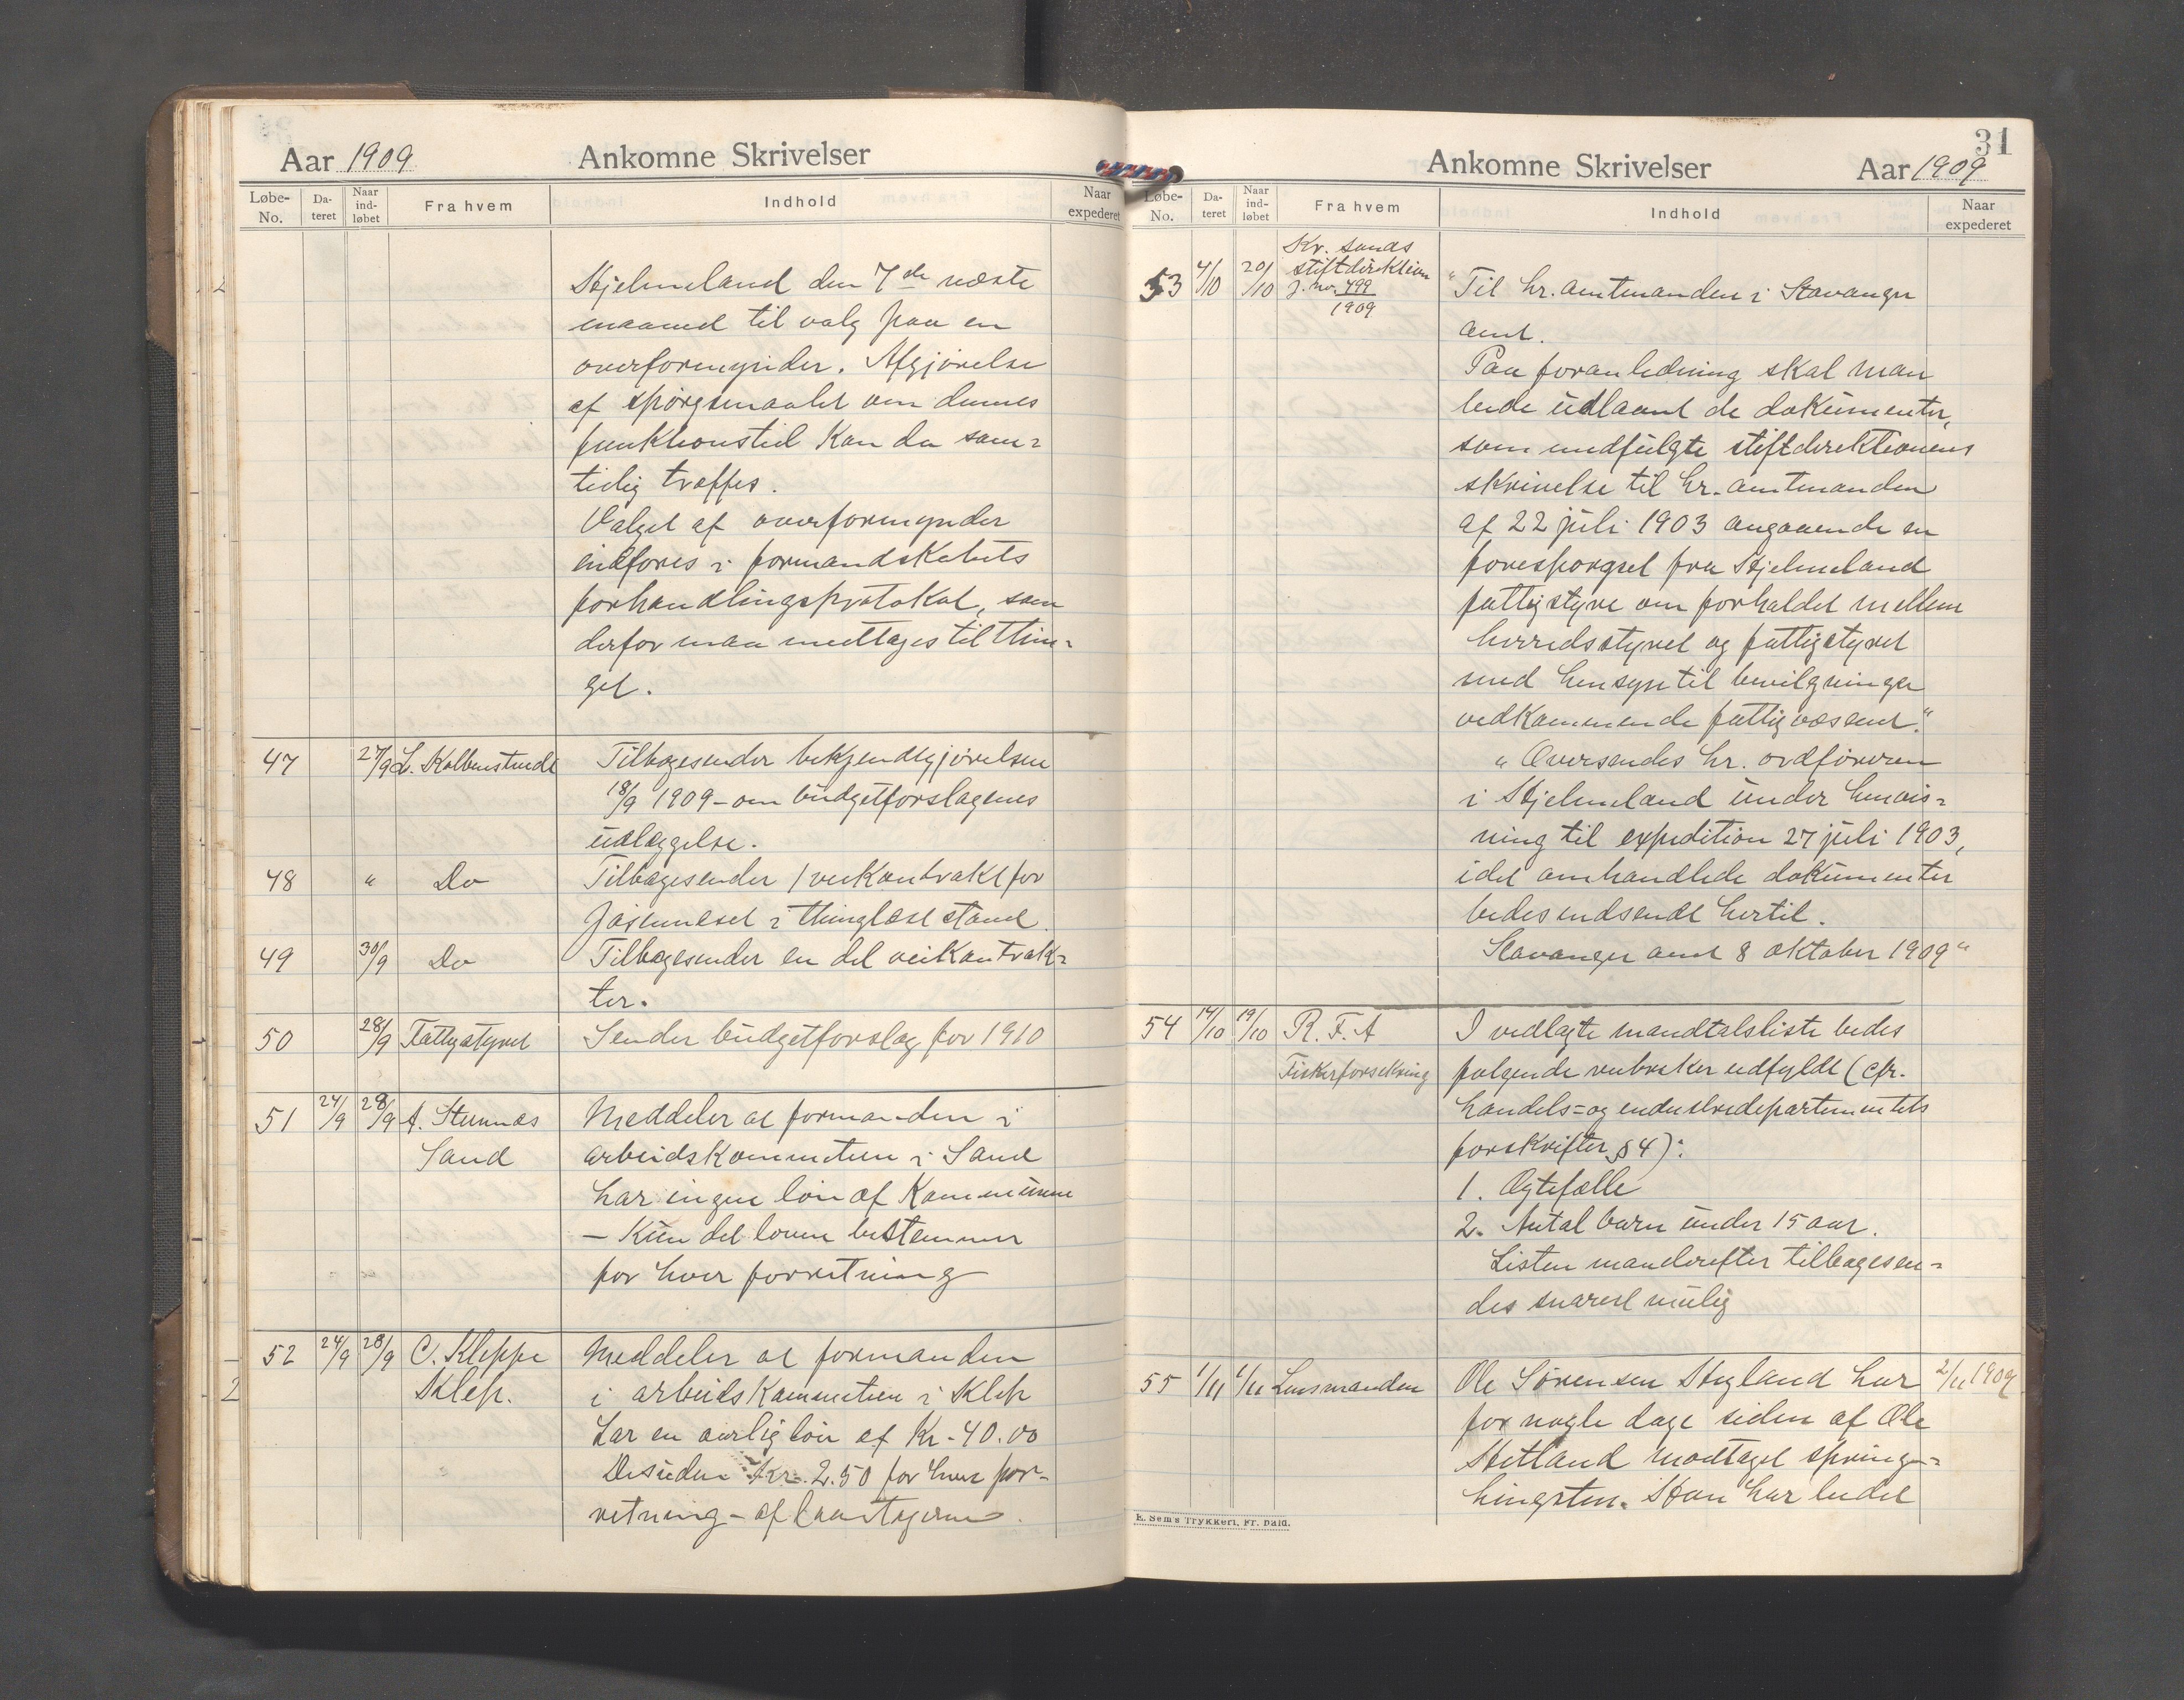 Aar 1909 Ankomne Skrivelser
Løbe-No. Dateret Naar indløbet Fra hvem Indhold Naar expederet
Hjelmeland den 7de næste
maaned til valg paa en
overformynder. Afgjørelse
af spørgsmaalet om dennes
funktionstid kan da sam=
tidig træffes.
Valget af overformynder
indføres i formandskabets
forhandlingsprotokol, som
derfor maa medtages til thin=
get.
47 27/9 L. Kolbenstvedt Tilbagesender bekjendtgjørelsen
18/9 1909 - om budgetforslagenes
udlæggelse.
48 " Do Tilbagesender 1 veikontrakt for
Jøsenneset i thinglæst stand.
49 30/9 Do Tilbagesender en del veikontrak=
ter.
50 28/9 Fattigstyret Sender budgetforslag for 1910
51 24/9 28/9 A. Stennæs Meddeler at formanden i
Sand arbeidskommitteen i Sand
har ingen løn af Kommunen
- Kun det loven bestemmer
for hver forretning
52 24/9 28/9 O. Kleppe Meddeler at formanden
Klep. i arbeidskommitteen i Klep
har en aarlig løn af Kr. 40.00
Desuden Kr. 2.50 for hver for-
retning - af laantagerne.
31
Ankomne Skrivelser Aar 1909
Løbe-No. Dateret Naar indløbet Fra hvem Indhold Naar expederet
Kr. sands
53 4/10 20/10 stiftdirektion "Til hr. amtmanden i Stavanger
j. no. 499
1909 amt.
Paa foranledning skal man
bede udlaant de dokumenter,
som medfulgte stiftdirektionens
skrivelse til hr. amtmanden
af 22 juli 1903 angaaende en
forespørgsel fra Hjelmeland
fattigstyre om forholdet mellem
herredsstyret og fattigstyret
med hensyn til bevilgninger
vedkommende fattigvæsenet."
"Oversendes hr. ordføreren
i Hjelmeland under henvis=
ning til expedition 27 juli 1903,
idet omhandlede dokumenter
bedes indsendt hertil.
Stavanger amt 8 oktober 1909"
54 14/10 19/10 R. F. A I vedlagte mandtalsliste bedes
Fiskerforsikring følgende rubrikker udfyldt (cfr.
handels= og industridepartementets
forskrifter § 4):
1. Ægtefælle
2. Antal barn under 15 aar.
Listen maa derefter tilbagesen=
des snarest mulig
55 1/11 1/11 Lensmanden Ole Sørensen Hegland har 2/11 1909
for nogle dage siden af Ole
Hetland modtaget spring=
hingsten. Han har ledet
E. Sem's Trykkeri, Fr. hald.